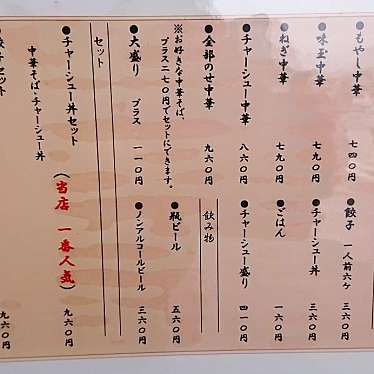 ●もやし中華 七四〇円
●味玉中華 七九〇円
●ねぎ中華 七九〇円
●チャーシュー中華 八六〇円
●全部のせ中華 九六〇円
※お好きな中華そば、
プラス二七〇円でセットにできます。
●大盛り プラス 一一〇円
●餃子 一人前六ケ 三六〇円
●チャーシュー丼 三六〇円
●ごはん 一六〇円
●チャーシュー盛り 四一〇円
飲み物
●瓶ビール 五六〇円
●ノンアルコールビール 三六〇円
セット
●チャーシュー丼セット(当店 一番人気) 九六〇円
中華そば・チャーシュー丼
セット 九六〇円